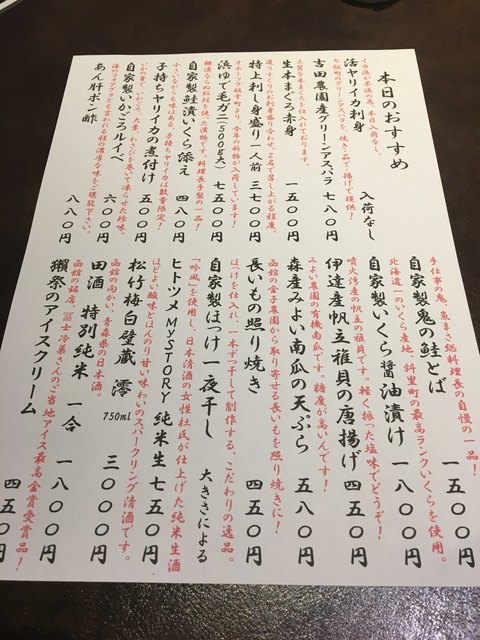 本日のおすすめ
イカ漁が不漁の為、本日入荷なし。
活ヤリイカ刺身 入荷なし
七飯町のグリーンアスパラを、焼き・茹で・揚げで提供!
吉田農園産グリーンアスパラ 七八〇円
上質な本まぐろを仕入れております。
生本まぐろ赤身 一五〇〇円
選りすぐりのお刺身盛り合わせ。2名で召し上がる程度。
特上刺し身盛り一人前 三七〇〇円
オホーツク枝幸町より、今年の新物が入荷しています!
浜ゆで毛ガニ(500g大) 七五〇〇円
自家製鮭漬いくら添え 四八〇円
小さいながらも味のある、子持ちヤリイカは数量限定!
子持ちヤリイカの煮付け 七八〇円
自家製いかごろルイベ 六〇〇円
海のフォアグラとも言われる程の濃厚な味をご堪能下さい。
あん肝ポン酢 八八〇円
手仕事の鬼、魚まさ総料理長の自慢の一品!
自家製鬼の鮭とば 一五〇〇円
北海道一のいくら産地、斜里町の最高ランクいくらを使用。
自家製いくら醤油漬け 一八〇〇円
噴火湾産の帆立の稚貝です。軽く振った塩味でどうぞ!
伊達産帆立稚貝の唐揚げ 四五〇円
みよい農園の有機南瓜です。糖度が高いんです!
森産みよい南瓜の天ぷら 五八〇円
函館の金子農園から取り寄せる長いもを照り焼きに!
長いもの照り焼き 四五〇円
ほっけを仕入れ、一本ずつ干して制作する、こだわりの逸品。
自家製ほっけ一夜干し 大きさによる
「吟風」を使用し、日本清酒の女性杜氏が仕上げた純米生酒
ヒトツメMYSTORY 純米生 七五〇円
ほどよい酸味とほんのり甘い味わいのスパークリング清酒です。
松竹梅白壁蔵 澪 750ml 三〇〇〇円
函館の向かい、青森県の日本酒。
田酒 特別純米 一合 一八〇〇円
函館の銘店、冨士冷菓さんのご当地アイス最高金賞受賞品!
獺祭のアイスクリーム 四五〇円